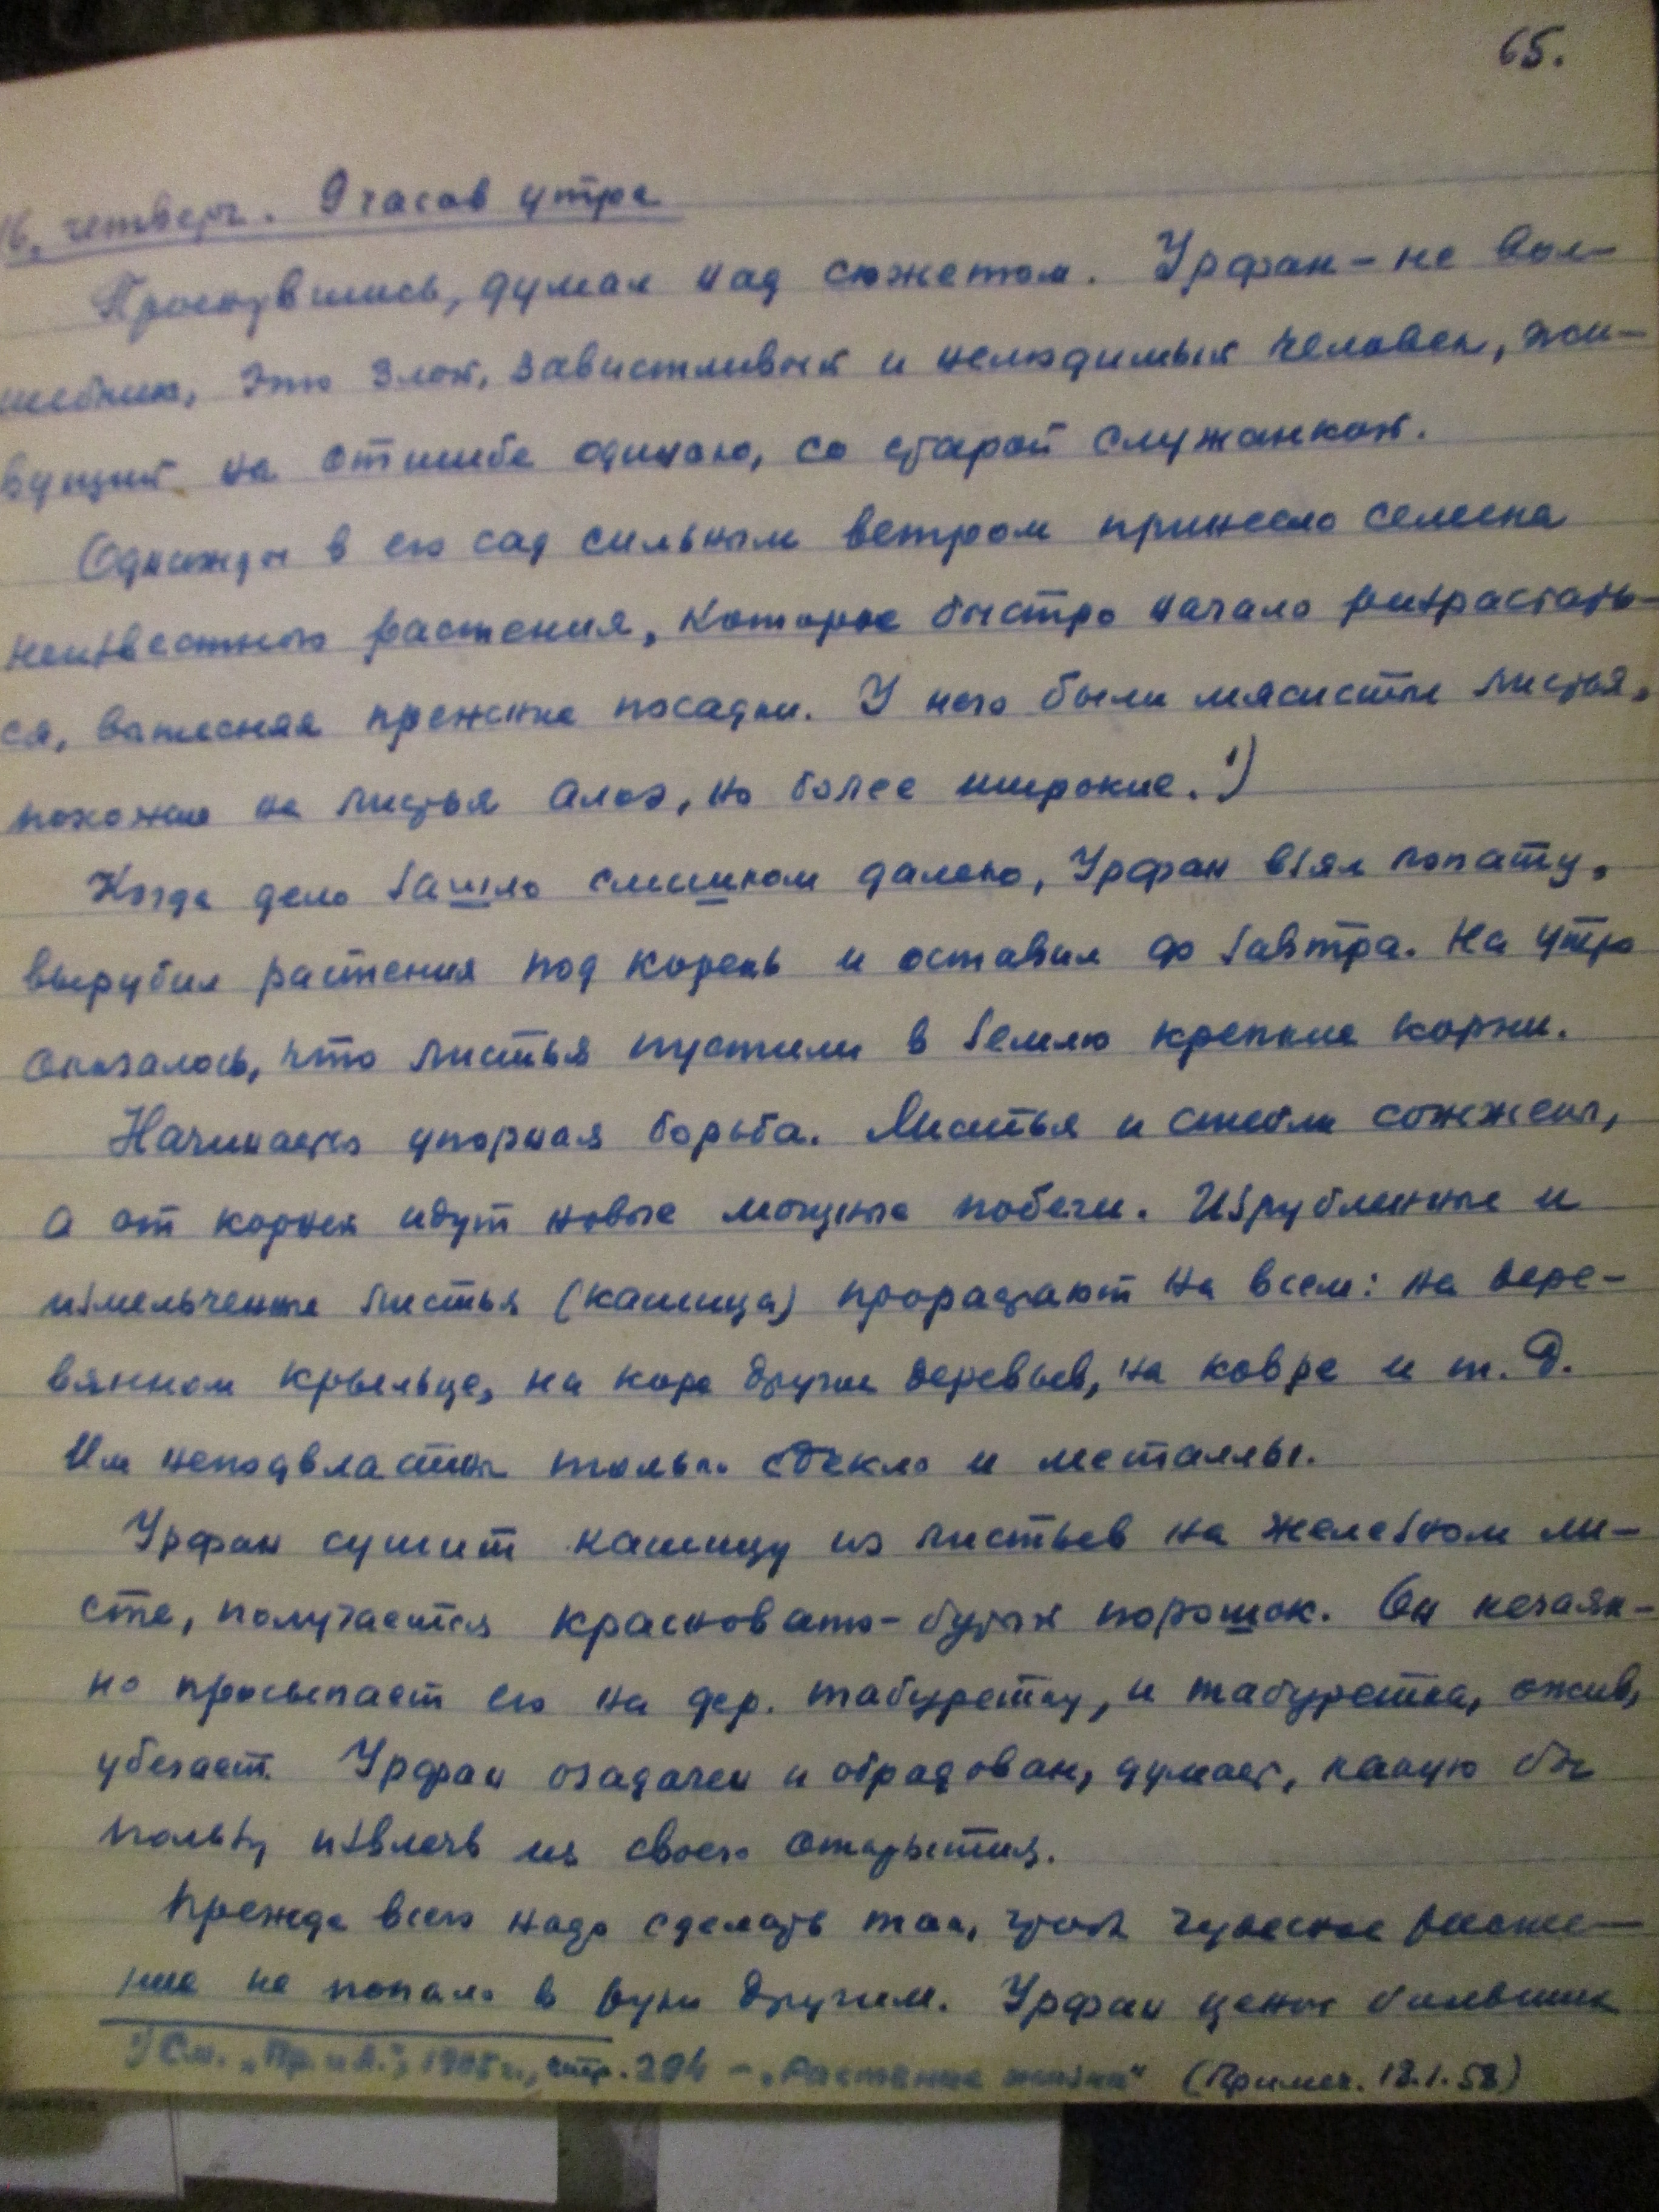 65.
16, четверг. 9 часов утра
Проснувшись, думал над сюжетом. Урфан – не вол-
шебник, это злой, завистливый и нелюдимый человек, жи-
вущий на отшибе одиноко, со старой служанкой.
Однажды в его сад сильным ветром принесло семена
неизвестного растения, которое быстро начало разрастать-
ся, вытесняя прежние посадки. У него были мясистые листья,
похожие на листья алоэ, но более широкие. 1)
Когда дело зашло слишком далеко, Урфан взял лопату,
вырубил растения под корень и оставил до завтра. На утро
оказалось, что листья пустили в землю крепкие корни.
Начинается упорная борьба. Листья и стебли сожжены,
а от корней идут новые мощные побеги. Изрубленные и
измельченные листья (кашица) прорастают на всем: на дере-
вянном крыльце, на коре других деревьев, на ковре и т. д.
Им неподвластны только стекло и металлы.
Урфан сушит кашицу из листьев на железном ли-
сте, получается красновато-бурый порошок. Он нечаян-
но просыпает его на дер. табуретку, и табуретка, ожив,
убегает. Урфан озадачен и обрадован, думает, какую бы
пользу извлечь из своего открытия.
Прежде всего надо сделать так, чтоб чудесное расте-
ние не попало в руки другим. Урфан ценой больших
1) См. „Пр. и Л.", 1905 г., стр. 204 – „Растение жизни" (Примеч. 18.1.58)